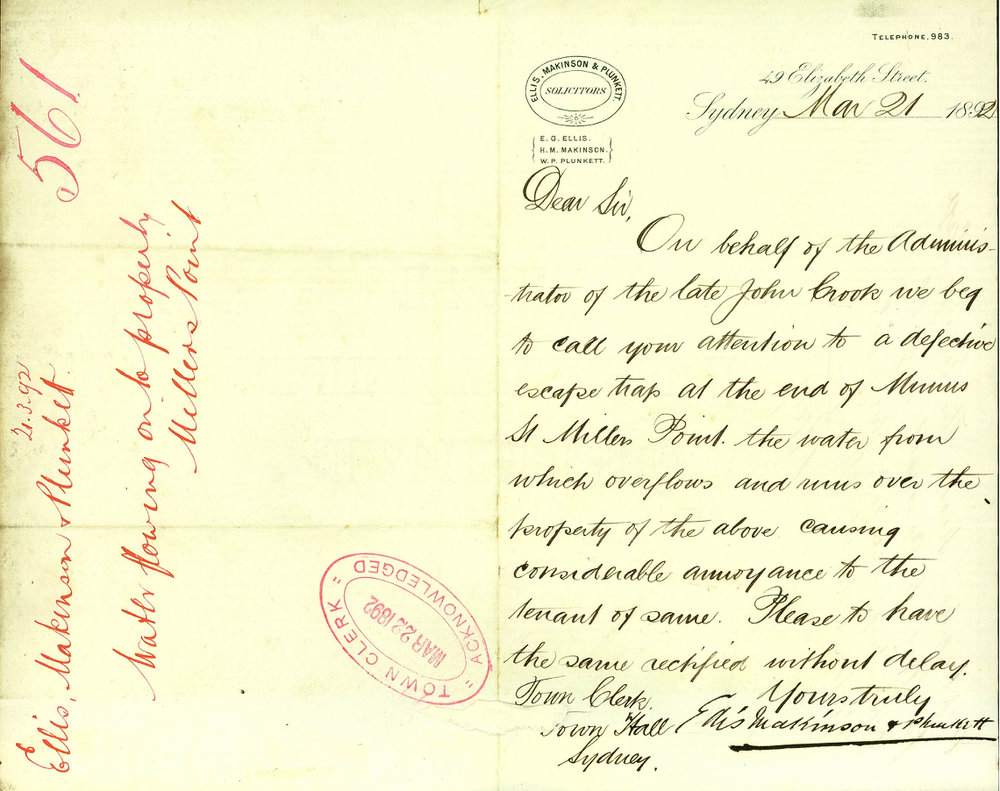 TELEPHONE, 983.
ELLIS, MAKINSON & PLUNKETT.
SOLICITORS
49 Elizabeth Street.
Sydney Mar 21 1892
E. G. ELLIS.
H. M. MAKINSON.
W. P. PLUNKETT.
Dear Sir,
On behalf of the Adminis-
trator of the late John Crook we beg
to call your attention to a defective
escape trap at the end of Munns
St Millers Point. the water from
which overflows and runs over the
property of the above causing
considerable annoyance to the
tenant of same. Please to have
the same rectified without delay.
Yours truly
Ellis Makinson & Plunkett
Town Clerk.
Town Hall
Sydney.
561
Ellis, Makinson & Plunkett.
21.3.92
Water flowing on to property
Millers Point
"TOWN CLERK"
MAR 23 1892
ACKNOWLEDGED